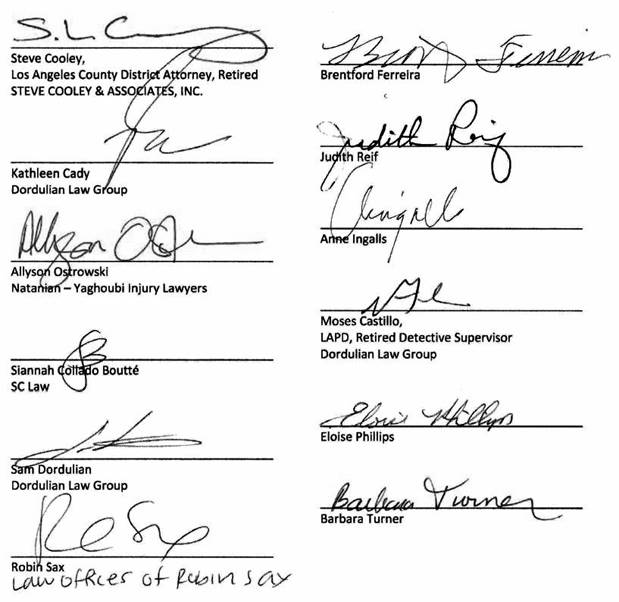 S. L. C
Steve Cooley,
Los Angeles County District Attorney, Retired
STEVE COOLEY & ASSOCIATES, INC.
Kathleen Cady
Dordulian Law Group
Allyson
Allyson Ostrowski
Natanian – Yaghoubi Injury Lawyers
Siannah Collado Boutté
SC Law
Sam Dordulian
Dordulian Law Group
Robin Sax
Law offices of Robin Sax
Brentford Ferreira
Judith Reif
Judith Reif
Ingalls
Anne Ingalls
Moses Castillo,
LAPD, Retired Detective Supervisor
Dordulian Law Group
Eloise Phillips
Eloise Phillips
Barbara Turner
Barbara Turner